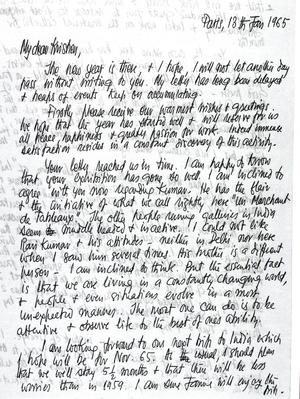 Paris, 18th Jan 1965
My dear Krishen,
The new year is there, & I hope I will not let another day
pass without writing to you. My letter has long been delayed
& heaps of events keep on accumulating.
Firstly please receive our warmest wishes & greetings.
We hope that the year has started well & will reserve for us
all peace, happiness & quality passion for work. Indeed immense
satisfaction resides in a constant discovery of this activity.
Your letter reached us in time. I am happy to know
that your exhibition has gone so well. I am inclined to
agree with you now regarding Kumar. He has the flair
& the initiative of what we call rightly here "un Marchand
de Tableaux". The other people running galleries in India
seem muddle headed & inactive. I could not like
Ravi Kumar & his attitudes neither in Delhi nor here
when I saw him several times. His brother is a different
person - I am inclined to think. But the essential fact
is that we are living in a constantly changing world,
& people & even situations evolve in a most
unexpected manner. The most one can do is to be
attentive & observe life to the best of ones ability.
I am looking forward to our next trip to India which
I hope will be for Nov 65. As usual, I should plan
that we will stay 5½ months & that there will be less
worries than in 1959. I am sure Janine will enjoy the
trip.